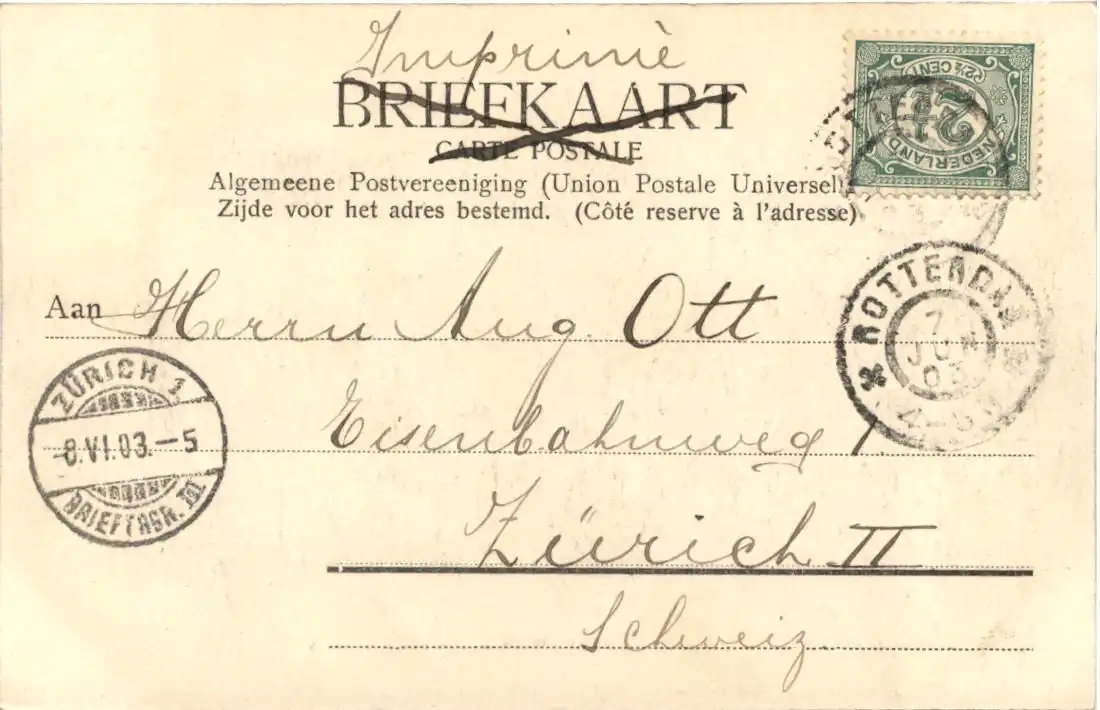 Imprimè
BRIEFKAART
CARTE POSTALE
Algemeene Postvereeniging (Union Postale Universell
Zijde voor het adres bestemd. (Côté reserve à l'adresse)
2½
NEDERLAND
(2½ CENT)
Aan Herrn Aug. Ott
ROTTERDAM
7
JUN
03
4-5
Eisenbahnweg 1.
ZÜRICH 1
8.VI.03.-5
BRIEFTRGR. III
Zürich II
Schweiz.